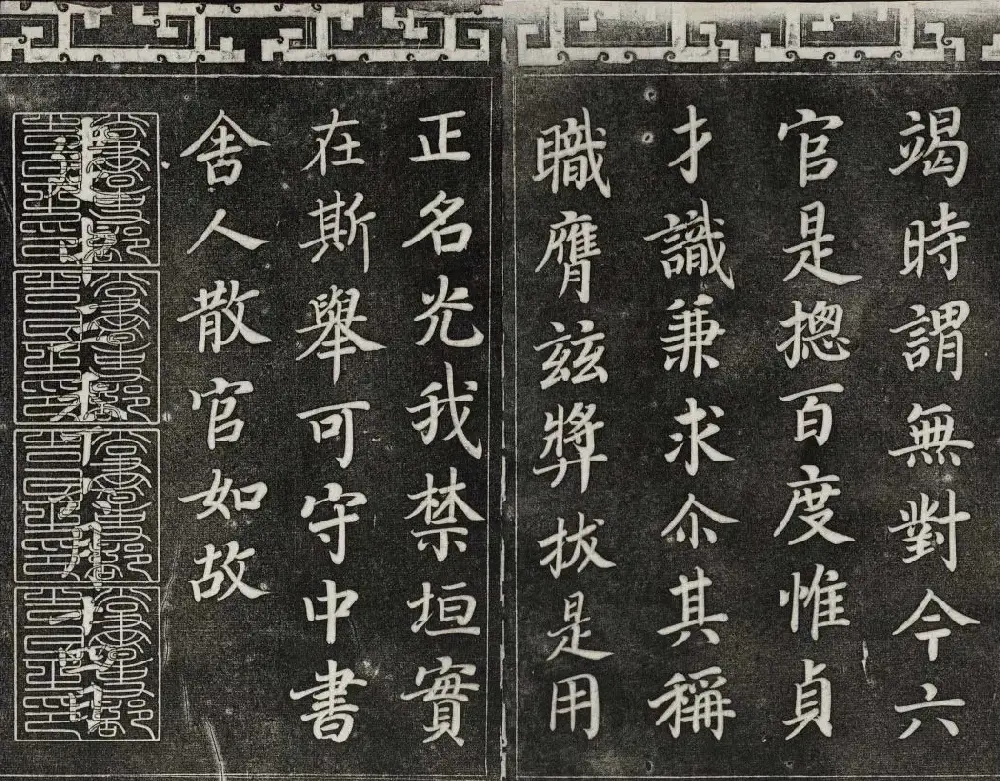 竭時謂無對今六
官是揔百度惟貞
才識兼求尒其稱
職膺茲獎拔是用
正名光我禁垣實
在斯舉可守中書
舍人散官如故